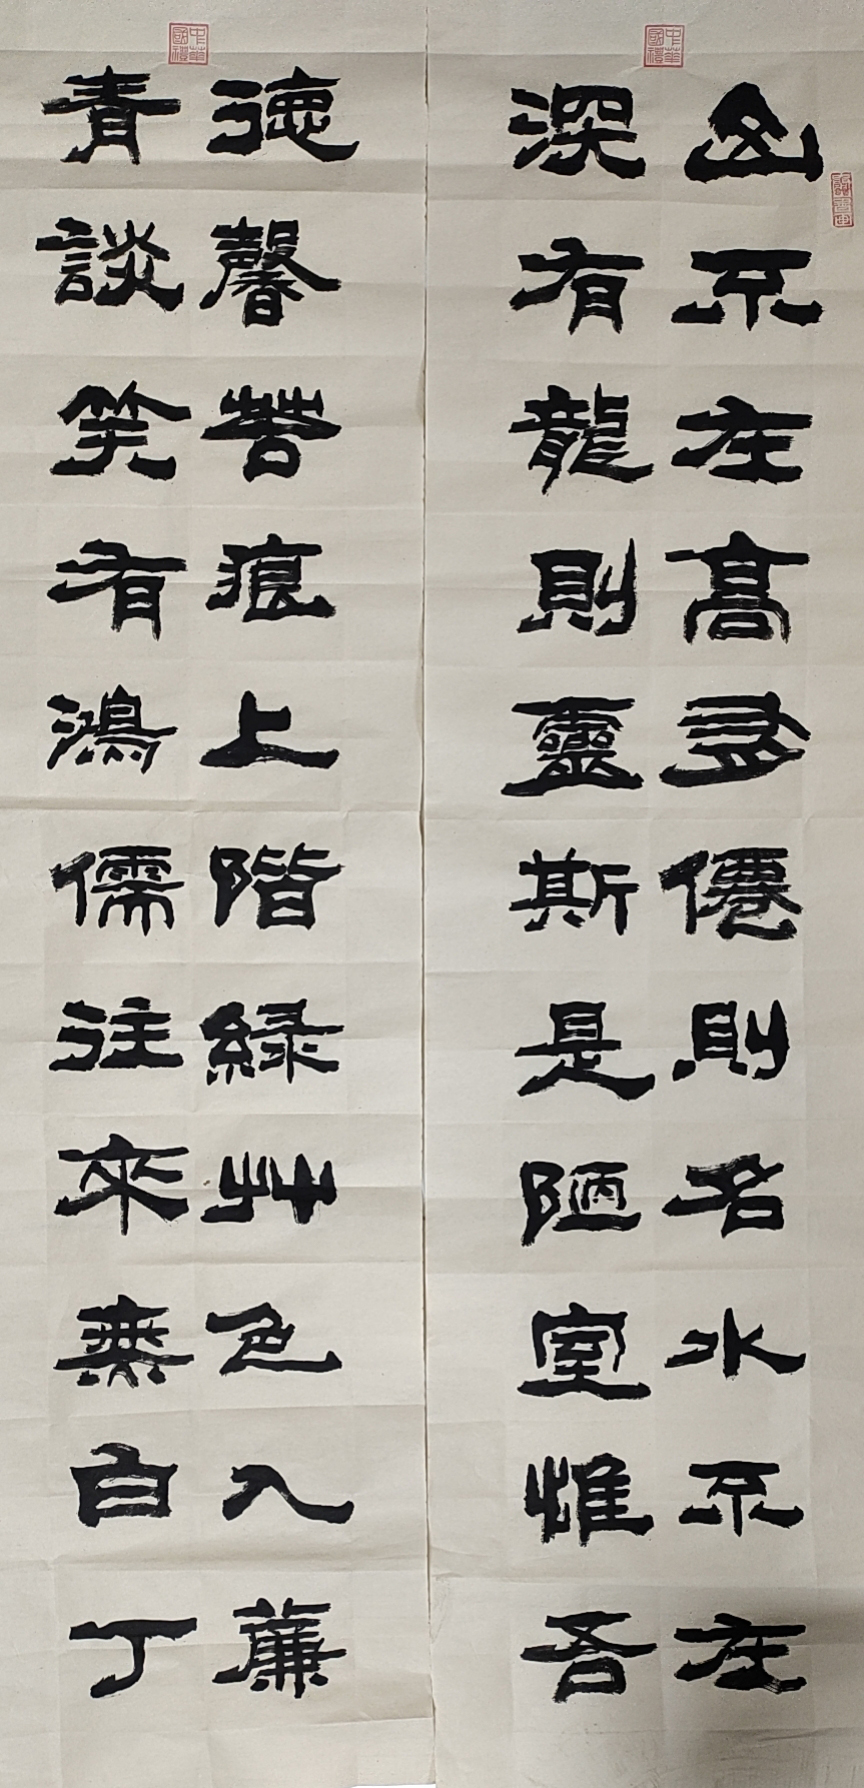 山不在高有僊則名水不在
深有龍則靈斯是陋室惟吾
德馨苔痕上階綠艸色入薕
青談笑有鴻儒往來無白丁
中華國禮
中華國禮